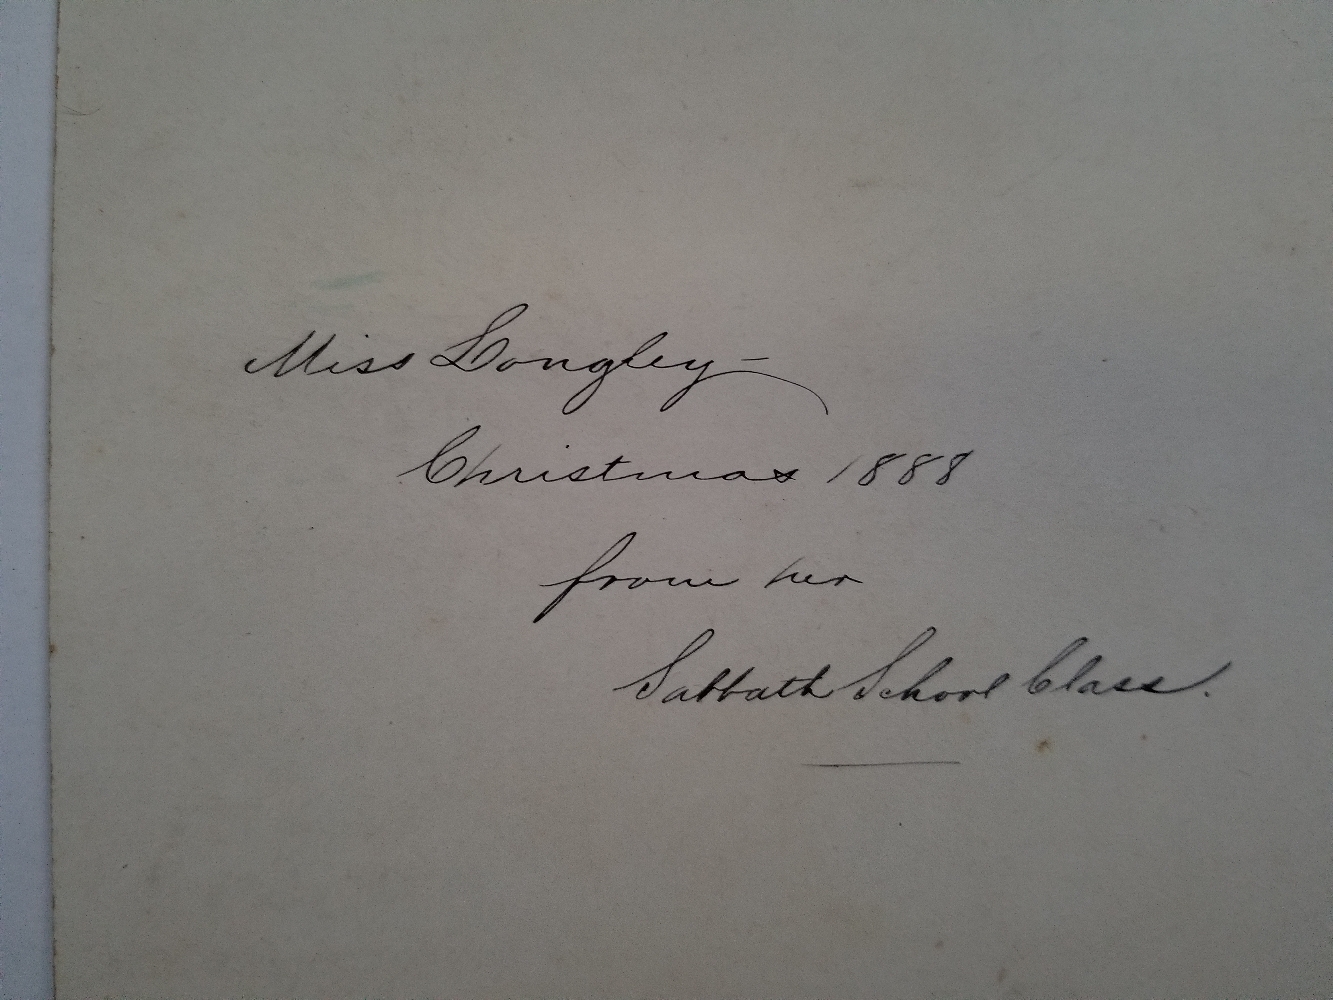 Miss Longley —
Christmas 1888
from her
Sabbath School Class.